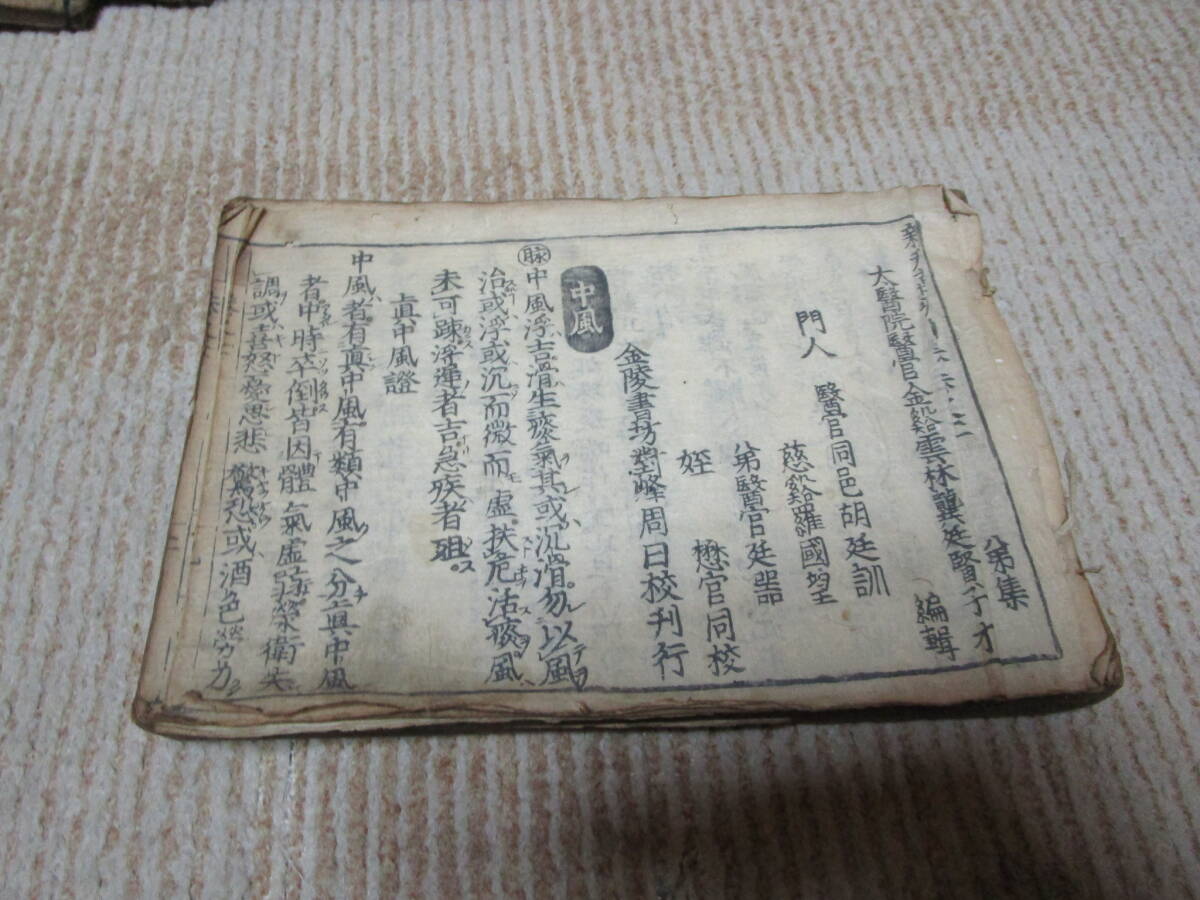 新刊
太醫院醫官金谿雲林龔廷賢子才 編輯
弟集
門人 醫官同邑胡廷訓
慈谿羅國望
弟醫官廷器
姪 懋官同校
金陵書坊對峰周曰校刊行
中風
脉 中風浮吉滑生痰氣其或沉滑勿以風
治或浮或沉而微而虛扶危治痰風
未可踈浮遲者吉急疾者殂
眞中風證
中風者有眞中風有類中風之分眞中風
者中時卒倒皆因體氣虛弱榮衛失
調或喜怒憂思悲驚恐或酒色勞力